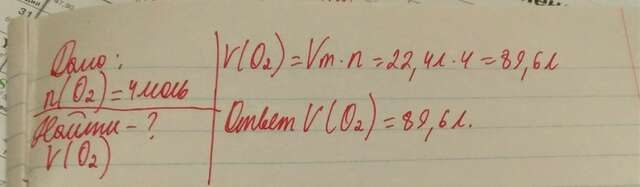 Дано:
n(O₂)=4моль
Найти-?
V(O₂)
V(O₂)=Vm·n=22,4л·4=89,6л
Ответ V(O₂)=89,6л.
31